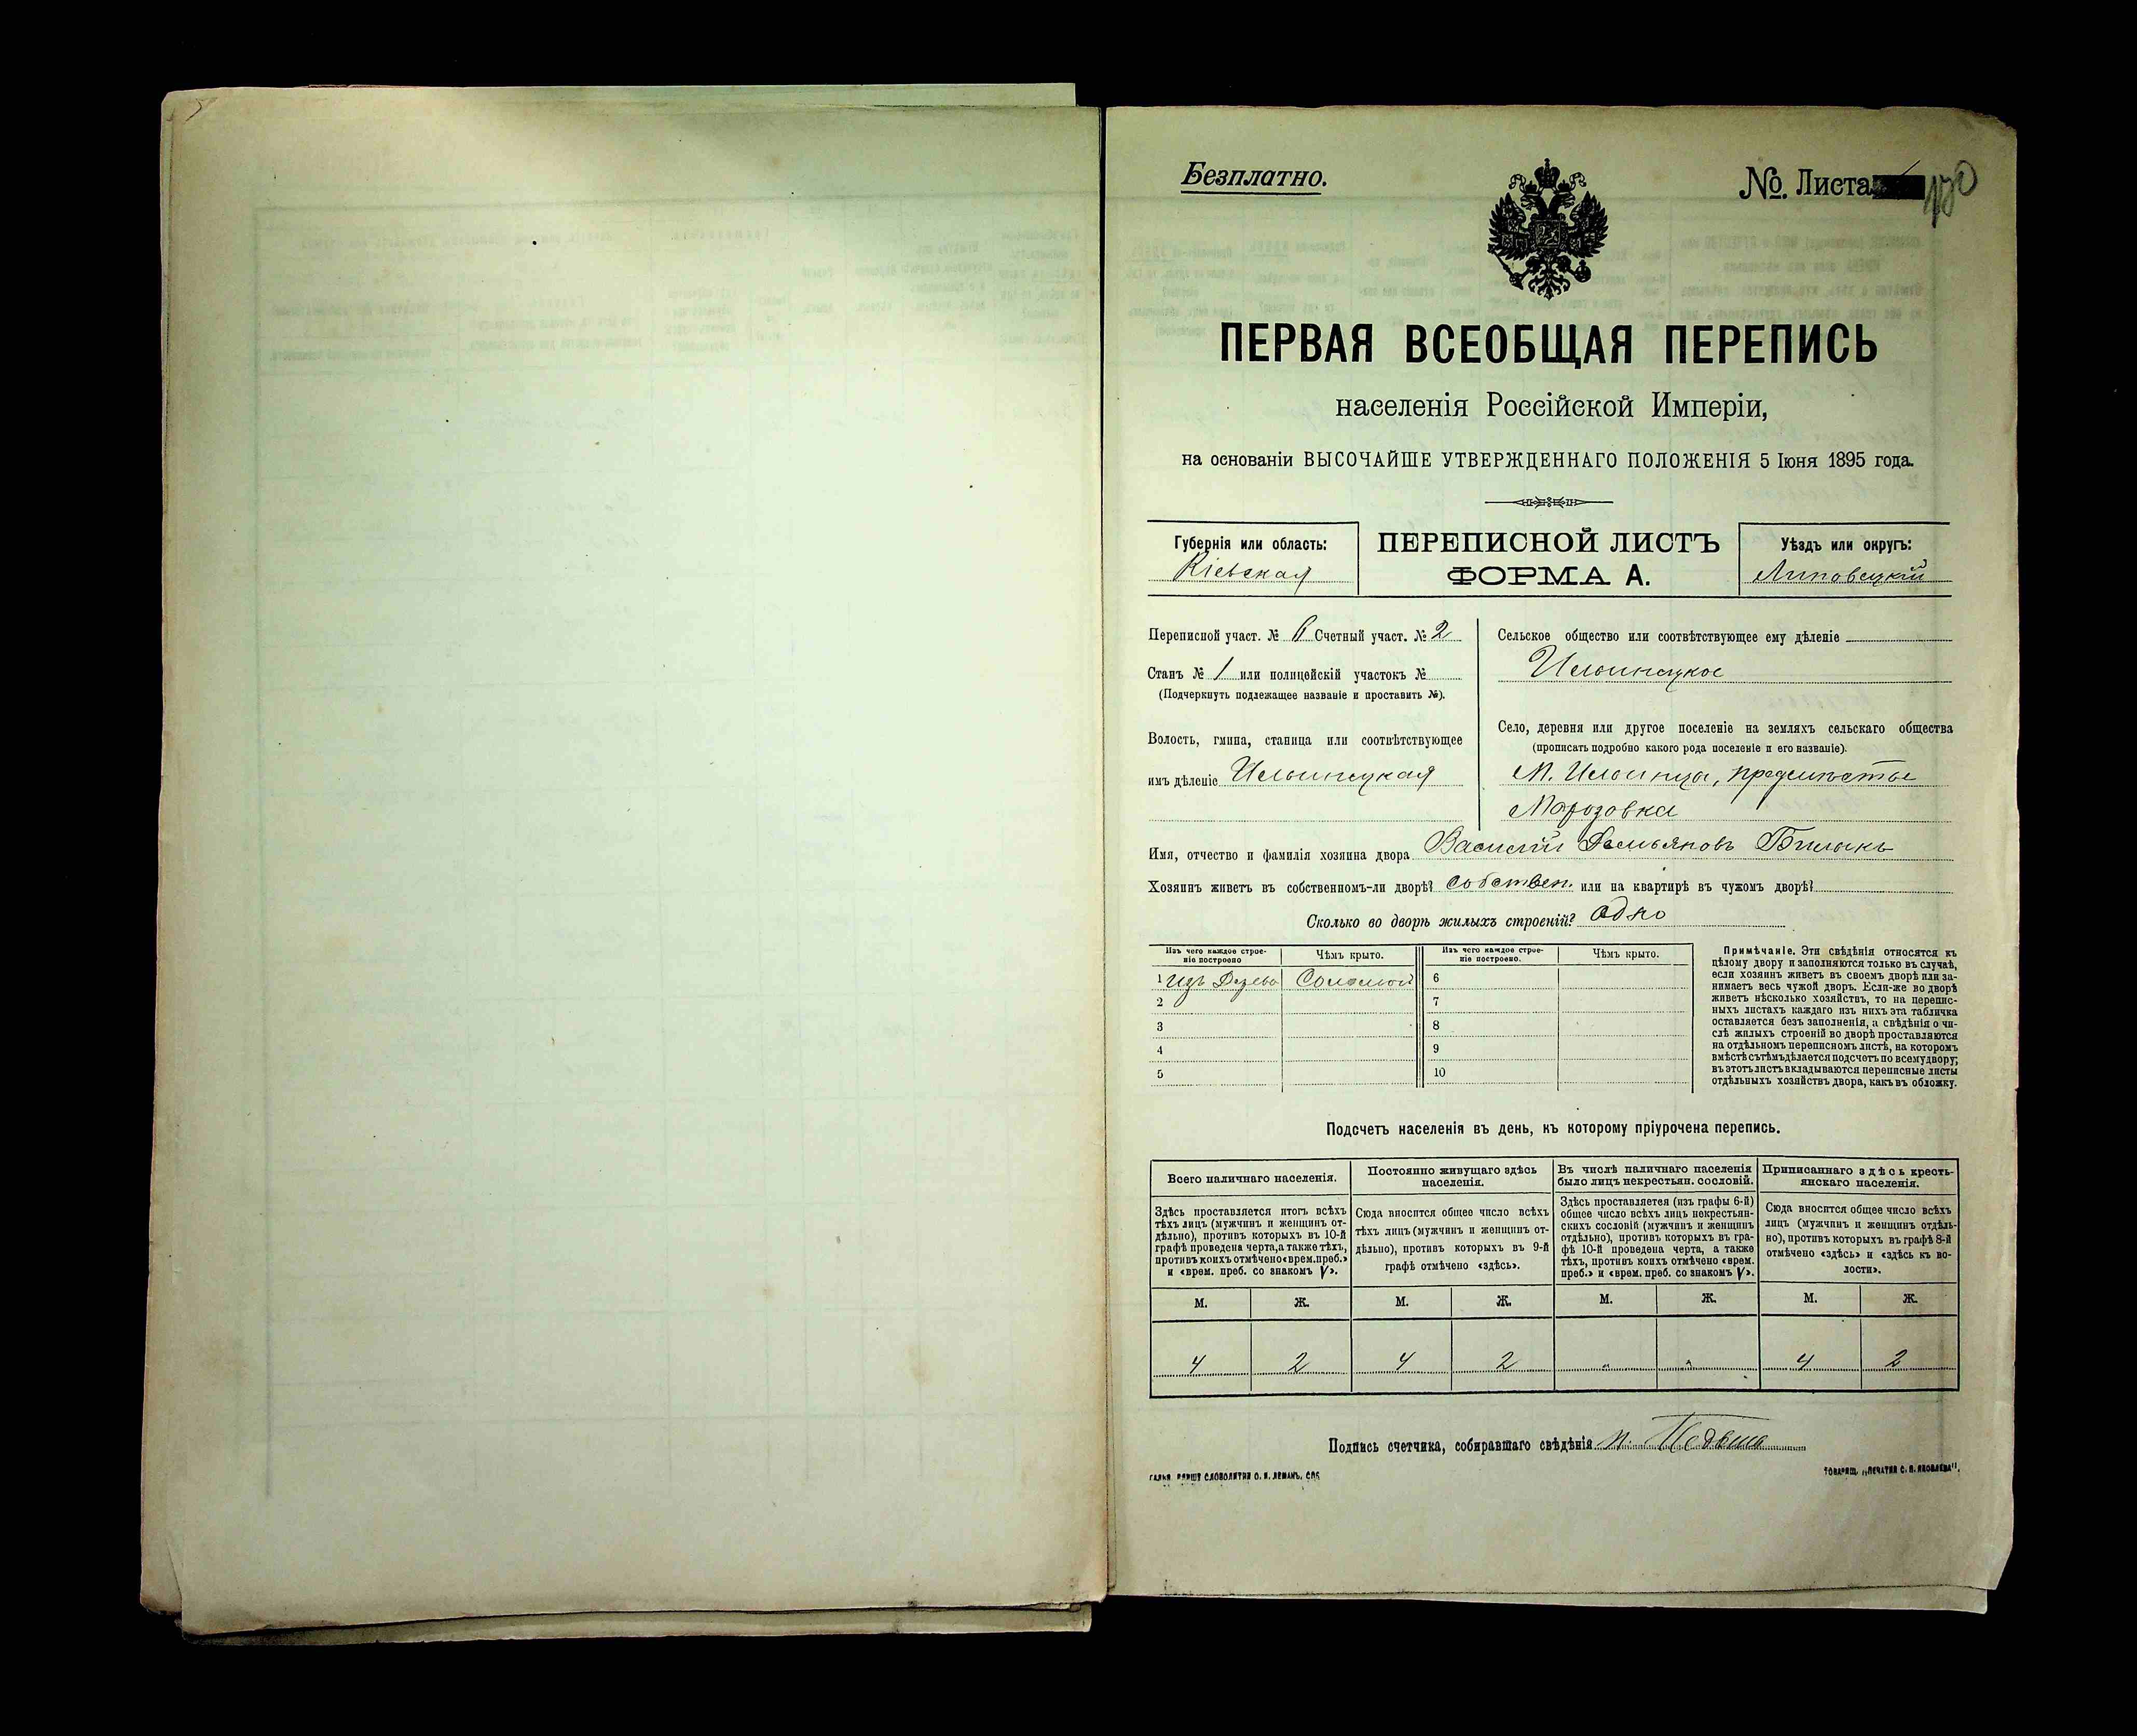 Безплатно.
№ Листа
ПЕРВАЯ ВСЕОБЩАЯ ПЕРЕПИСЬ
населенія Россійской Имперіи,
на основаніи ВЫСОЧАЙШЕ УТВЕРЖДЕННАГО ПОЛОЖЕНІЯ 5 Іюня 1895 года.
Губернія или область:
Кіевская
ПЕРЕПИСНОЙ ЛИСТЪ
ФОРМА А.
Уѣздъ или округъ:
Липовецкій
Переписной участ. № 6 Счетный участ. № 2
Станъ № 1 или полицейскій участокъ №
(Подчеркнуть подлежащее названіе и проставить №).
Волость, гмина, станица или соотвѣтствующее
имъ дѣленіе Ильинецкая
Сельское общество или соотвѣтствующее ему дѣленіе
Ильинецкое
Село, деревня или другое поселеніе на земляхъ сельскаго общества
(прописать подробно какого рода поселеніе и его названіе).
М. Ильинцы, предмѣстье
Морозовка
Имя, отчество и фамилія хозяина двора Василій Демьяновъ Билыкъ
Хозяинъ живетъ въ собственномъ-ли дворѣ? собствен. или на квартирѣ въ чужомъ дворѣ?
Сколько во дворѣ жилыхъ строеній? Одно
Изъ чего каждое строе-
ніе построено
Чѣмъ крыто.
Изъ чего каждое строе-
ніе построено.
Чѣмъ крыто.
1 Изъ Дерева Соломой 6
2 7
3 8
4 9
5 10
Примѣчаніе. Эти свѣдѣнія относятся къ
цѣлому двору и заполняются только въ случаѣ,
если хозяинъ живетъ въ своемъ дворѣ или за-
нимаетъ весь чужой дворъ. Если-же во дворѣ
живетъ нѣсколько хозяйствъ, то на перепис-
ныхъ листахъ каждаго изъ нихъ эта табличка
оставляется безъ заполненія, а свѣдѣнія о чи-
слѣ жилыхъ строеній во дворѣ проставляются
на отдѣльномъ переписномъ листѣ, на которомъ
вмѣстѣ съ тѣмъ дѣлается подсчетъ по всему двору;
въ этотъ листъ вкладываются переписные листы
отдѣльныхъ хозяйствъ двора, какъ въ обложку.
Подсчетъ населенія въ день, къ которому пріурочена перепись.
Всего наличнаго населенія.
Постоянно живущаго здѣсь
населенія.
Въ числѣ наличнаго населенія
было лицъ некрестьян. сословій.
Приписаннаго здѣсь кресть-
янскаго населенія.
Здѣсь проставляется итогъ всѣхъ
тѣхъ лицъ (мужчинъ и женщинъ от-
дѣльно), противъ которыхъ въ 10-й
графѣ проведена черта, а также тѣхъ,
противъ коихъ отмѣчено «врем. преб.»
и «врем. преб. со знакомъ V».
Сюда вносится общее число всѣхъ
тѣхъ лицъ (мужчинъ и женщинъ от-
дѣльно), противъ которыхъ въ 9-й
графѣ отмѣчено «здѣсь».
Здѣсь проставляется (изъ графы 6-й)
общее число всѣхъ лицъ некрестьян-
скихъ сословій (мужчинъ и женщинъ
отдѣльно), противъ которыхъ въ гра-
фѣ 10-й проведена черта, а также
тѣхъ, противъ коихъ отмѣчено «врем.
преб.» и «врем. преб. со знакомъ V».
Сюда вносится общее число всѣхъ
лицъ (мужчинъ и женщинъ отдѣль-
но), противъ которыхъ въ графѣ 8-й
отмѣчено «здѣсь» и «здѣсь къ во-
лости».
М. Ж. М. Ж. М. Ж. М. Ж.
4 2 4 2 " " 4 2
Подпись счетчика, собиравшаго свѣдѣнія
СЛОВОЛИТНИ О. И. ЛЕМАНЪ, СПБ
ТОВАРИЩ. „ПЕЧАТНЯ С. П. ЯКОВЛЕВА".